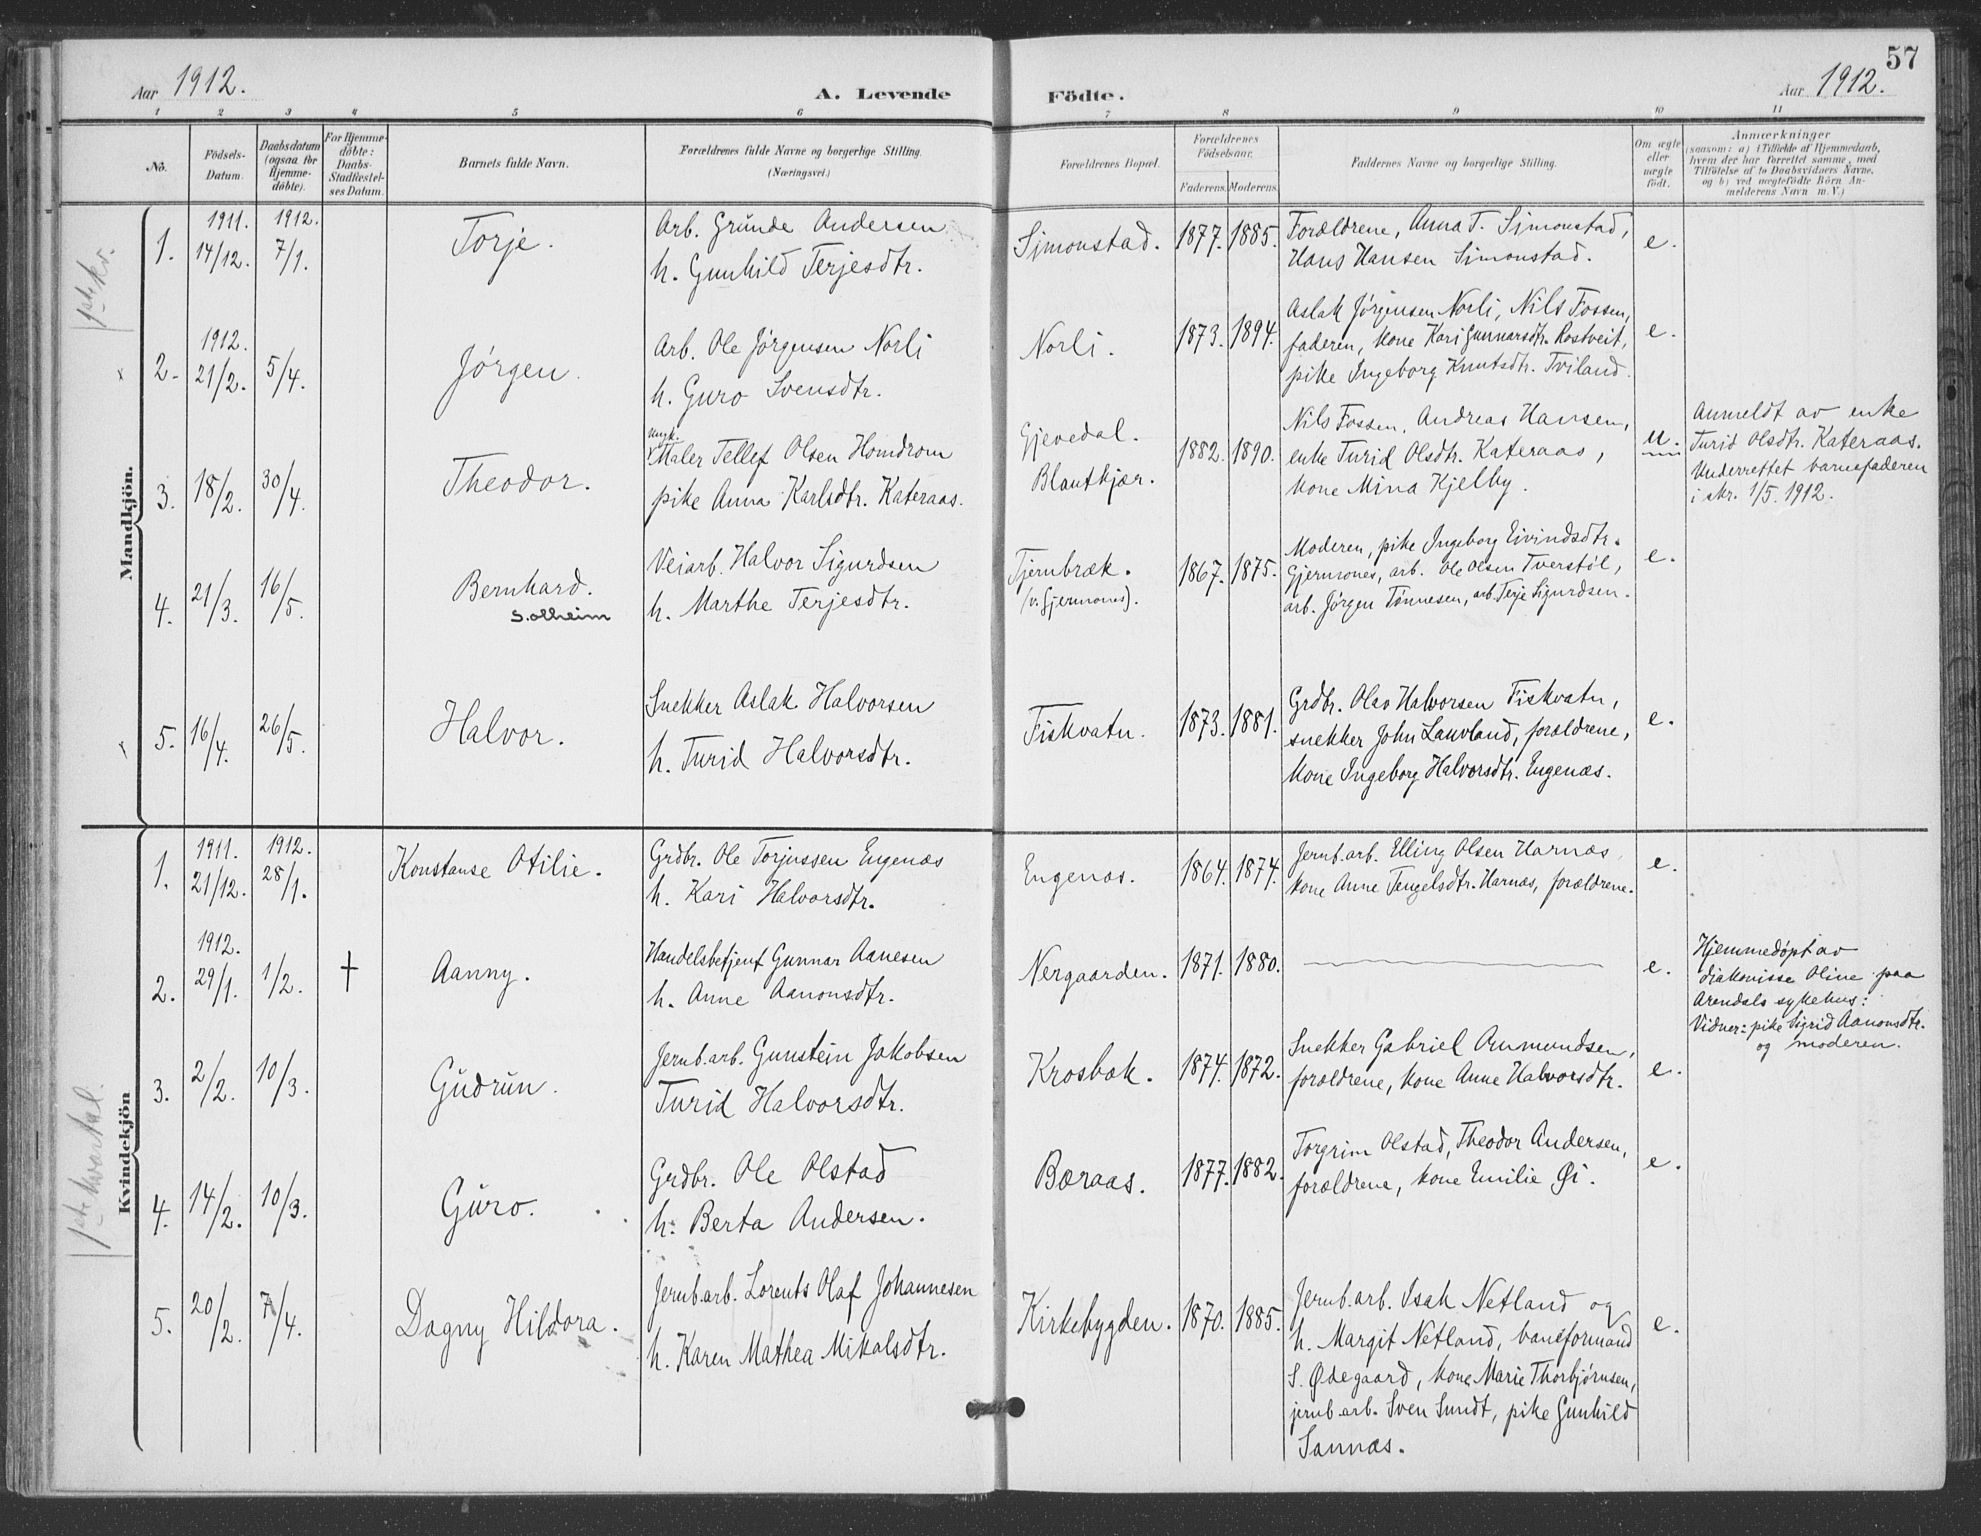 57
Aar 1912.
A. Levende
Födte.
Aar 1912.
1 2 3 4 5 6 7 8 9 10 11
No.
Födsels-
Datum.
Daabsdatum
(ogsaa for
Hjemme-
döbte).
For Hjemme-
döbte:
Daabs-
Stadfæstel-
ses Datum.
Barnets fulde Navn.
Forældrenes fulde Navne og borgerlige Stilling.
(Næringsvei.)
Forældrenes Bopæl.
Forældrenes
Födselsaar.
Faderens. Moderens.
Faddernes Navne og borgerlige Stilling.
Om ægte
eller
uægte
født.
Anmærkninger
(saasom: a) i Tilfælde af Hjemmedaab,
hvem der har forrettet samme, med
Tilföielse af to Daabsvidners Navne,
og b) ved uægtefödte Börn An-
melderens Navn m. V.)
1ste kv.
Mandkjön.
1. 1911. 14/12. 1912. 7/1. Torje.
Arb. Grunde Andersen
h. Gunhild Terjesdtr.
Simonstad. 1877. 1885.
Forældrene, Anna T. Simonstad,
Hans Hansen Simonstad.
e.
2. 1912. 21/2. 5/4. Jørgen.
Arb. Ole Jörgensen Norli
h. Guro Svensdtr.
Norli. 1873. 1894.
Aslak Jörgensen Norli, Nils Fossen,
faderen, kone Kari Gunnarsdtr. Rostveit,
pike Ingeborg Knutsdtr. Tviland.
e.
3. 18/2. 30/4. Theodor.
Ungk.
Maler Tellef Olsen Homdrom
pike Anna Karlsdtr. Kateraas.
Gjevedal.
Blautkjær.
1882. 1890.
Nils Fossen, Andreas Hansen,
enke Turid Olsdtr. Kateraas,
kone Mina Kjelby.
u.
Anmeldt av enke
Turid Olsdtr. Kateraas.
Underrettet barnefaderen
i skr. 1/5. 1912.
4. 21/3. 16/5. Bernhard.
Solheim
Veiarb. Halvor Sigurdsen
h. Marthe Terjesdtr.
Tjernbræk.
(v. Gjermones).
1867. 1875.
Moderen, pike Ingeborg Eivindsdtr.
Gjermones, arb. Ole Olsen Tverstöl,
arb. Jörgen Tönnesen, arb. Terje Sigurdsen.
e.
5. 16/4. 26/5. Halvor.
Snekker Aslak Halvorsen
h. Turid Halvorsdtr.
Fiskvatn. 1873. 1881.
Grdbr. Olav Halvorsen Fiskvatn,
snekker John Lauvland, forældrene,
kone Ingeborg Halvorsdtr. Engenæs.
e.
1ste kvartal.
Kvindekjön
1. 1911. 21/12. 1912. 28/1. Konstanse Otilie.
Grdbr. Ole Torjussen Engenæs
h. Kari Halvorsdtr.
Engenæs. 1864. 1874.
Jernb.arb. Elling Olsen Harnæs,
kone Anne Tengelsdtr. Harnæs, forældrene.
e.
2. 1912. 29/1. 1/2. † Aanny.
Handelsbetjent Gunnar Aanesen
h. Anne Aanonsdtr.
Nergaarden. 1871. 1880.
e.
Hjemmedøpt av
diakonisse Oline paa
Arendals sykehus:
Vidner: pike Sigrid Aanonsdtr.
og moderen.
3. 2/2. 10/3. Gudrun.
Jernb.arb. Gunstein Jakobsen
Turid Halvorsdtr.
Krosbæk. 1874. 1872.
Snekker Gabriel Ammundsen,
forældrene, kone Anne Halvorsdtr.
e.
4. 14/2. 10/3. Guro.
Grdbr. Ole Olstad
h. Berta Andersen.
Børaas. 1877. 1882.
Torgrim Olstad, Theodor Andersen,
forældrene, kone Emilie Øi.
e.
5. 20/2. 7/4. Dagny Hildora.
Jernb.arb. Lorents Olaf Johannesen
h. Karen Mathea Mikalsdtr.
Kirkebygden. 1870. 1885.
Jernb.arb. Isak Netland og
h. Margit Netland, baneformand
S. Ødegaard, kone Marie Thorbjörnsen,
jernb.arb. Sven Sundt, pike Gunhild
Sannæs.
e.